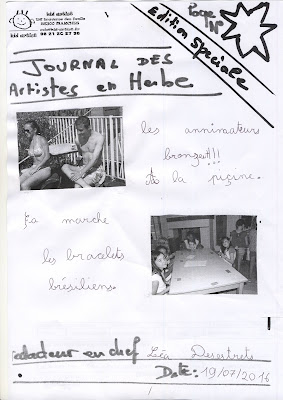 kid artistik
Page N°
Edition Spéciale
JOURNAL DES
Artistes en Herbe
les annimateurs
bronze!!!
A la piçine.
Ça marche
les bracelets
brésiliens.
redacteur en chef Léa Desertrets
Date: 19/07/2016